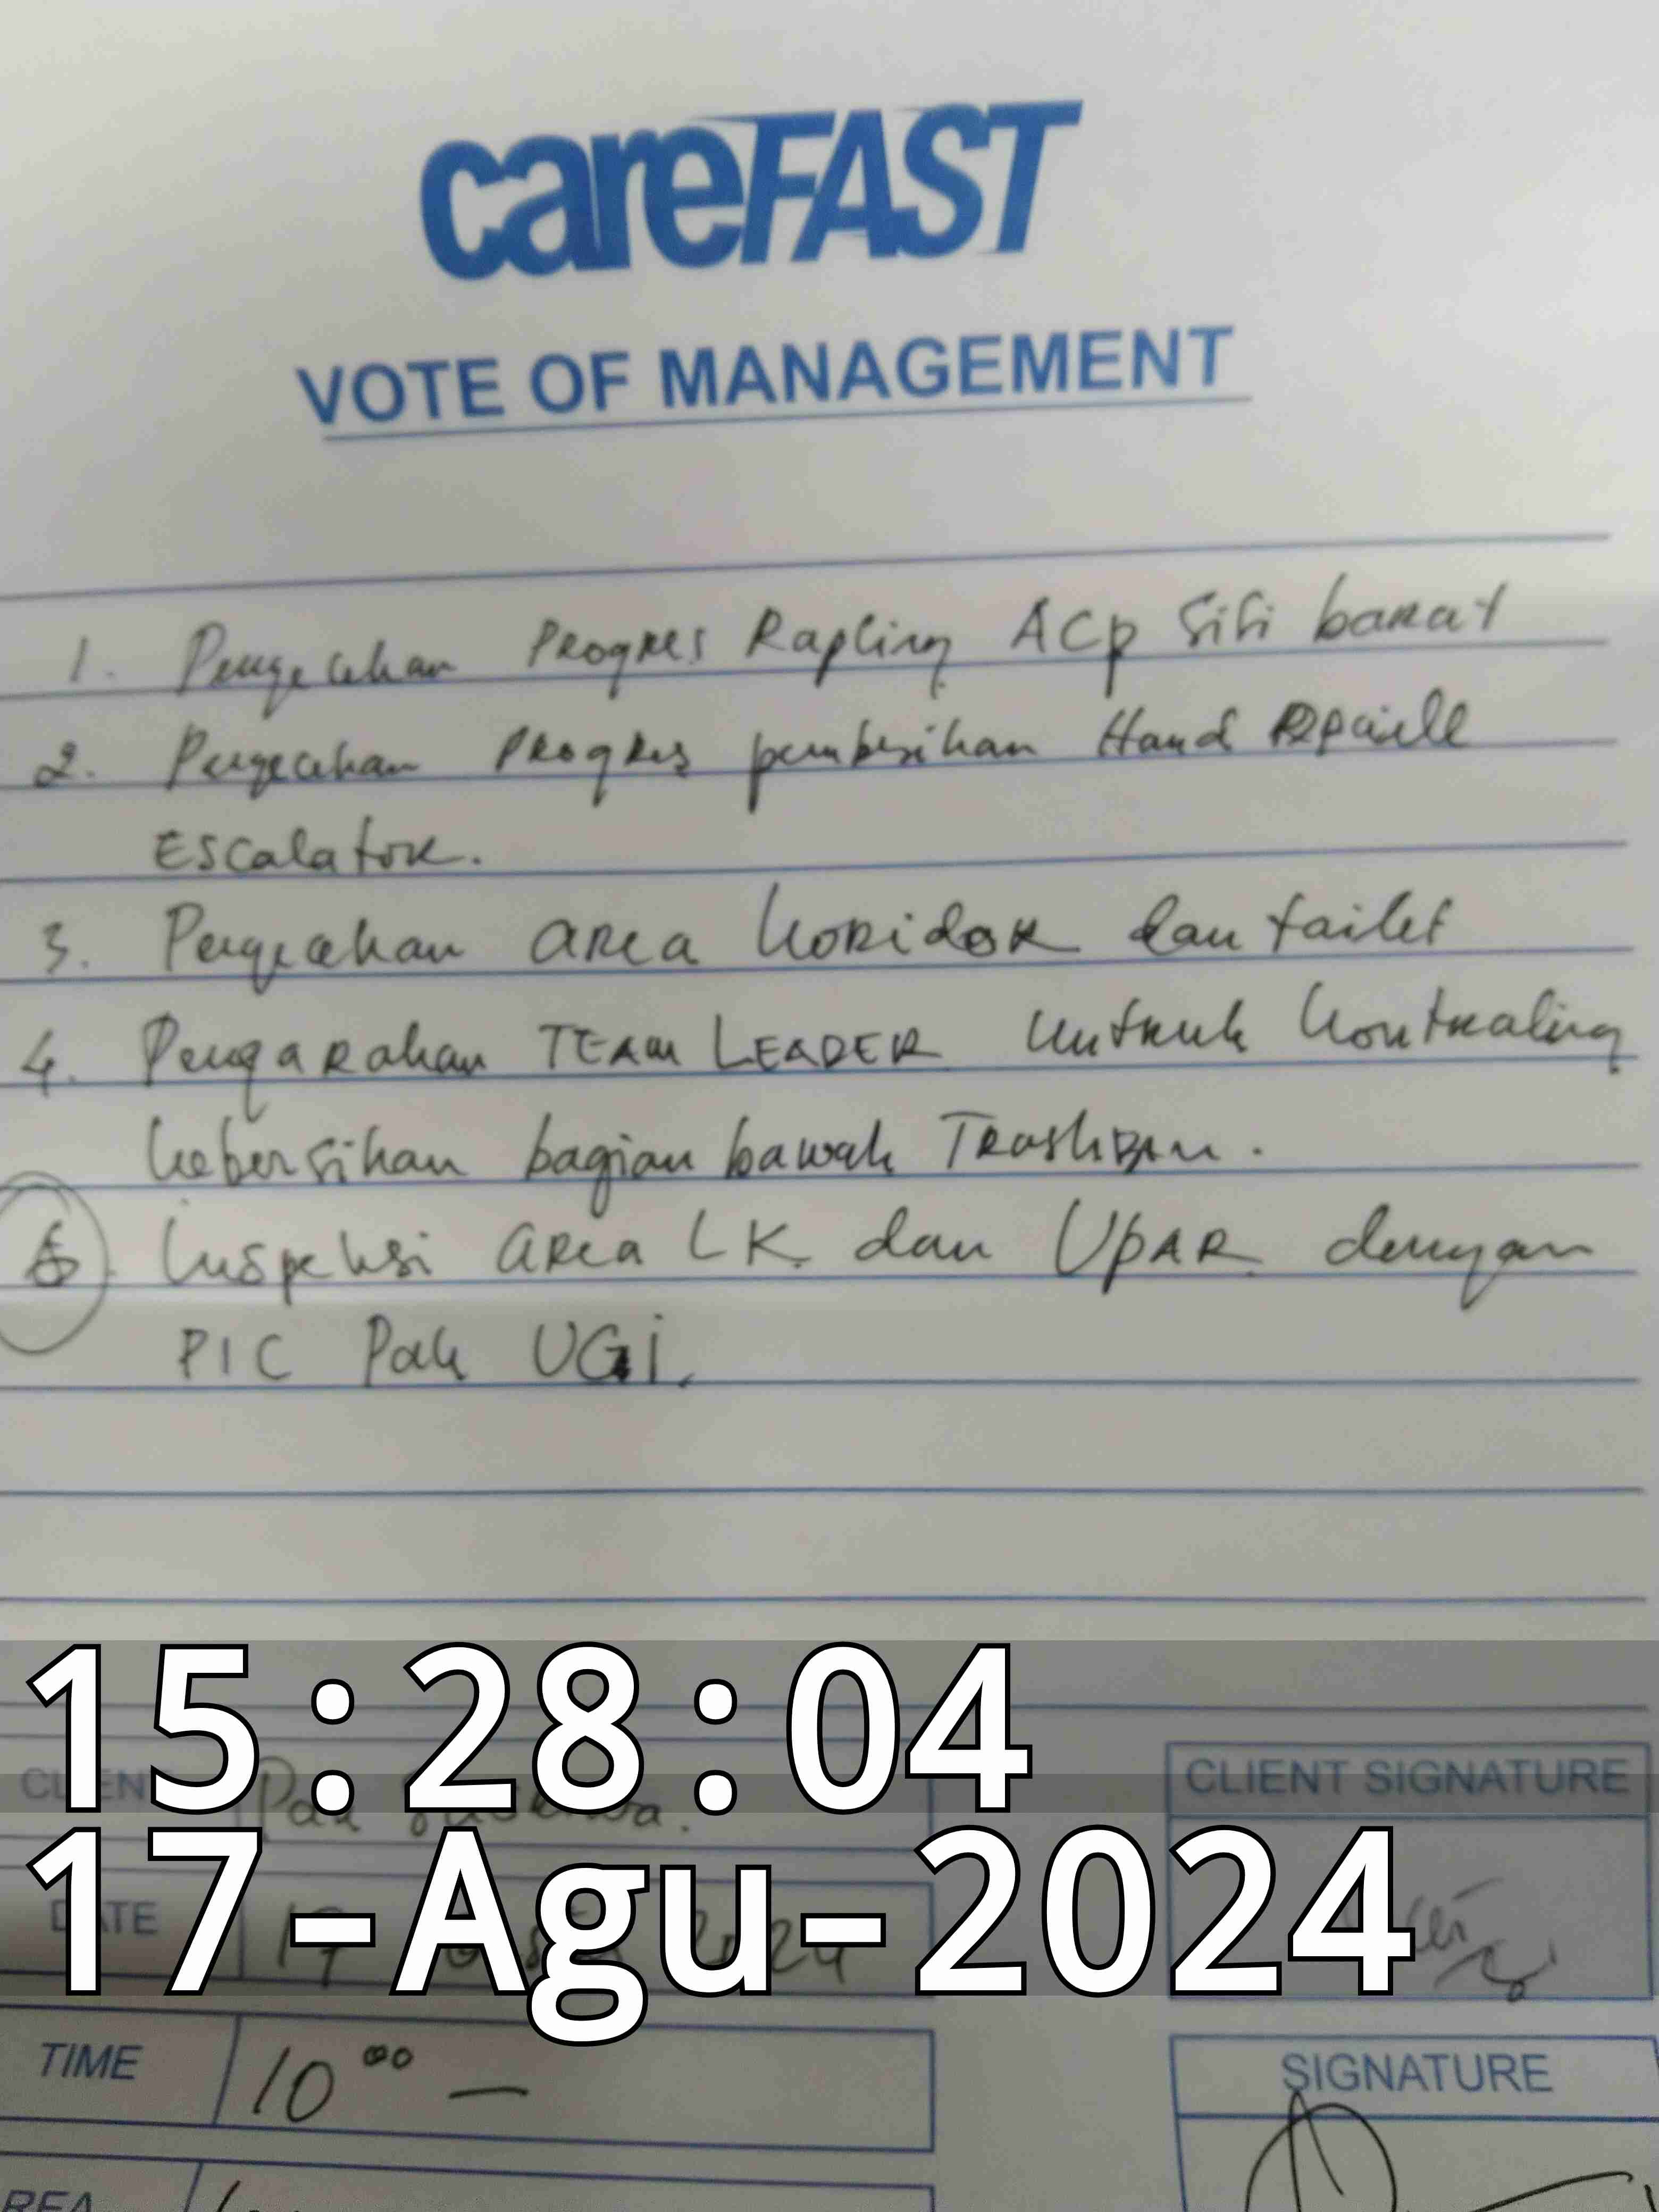 careFAST
VOTE OF MANAGEMENT
1. Pengecekan Progres Rapling ACP Sisi barat
2. Pengecekan Progres pembersihan Hand
Escalator.
3. Pengecekan area koridor dan toilet
4. Pengarahan TEAM LEADER untuk kontroling
kebersihan bagian bawah TrashBin.
5. Inspeksi area LK dan UPAR dengan
PIC Pak UGi.
15:28:04
CLIENT Pak
CLIENT SIGNATURE
17-Agu-2024
DATE 17 2024
TIME 10 00 —
SIGNATURE